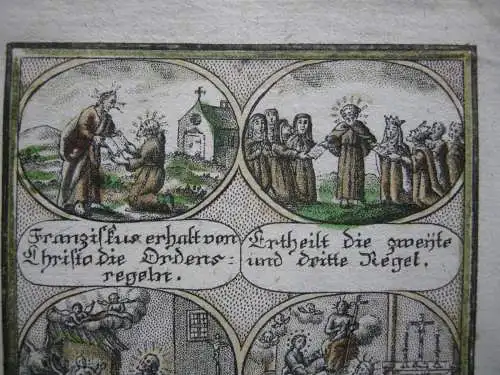 Franziskus erhalt von
Christo die Ordens-
regeln.
Ertheilt die zweÿte
und dritte Regel.